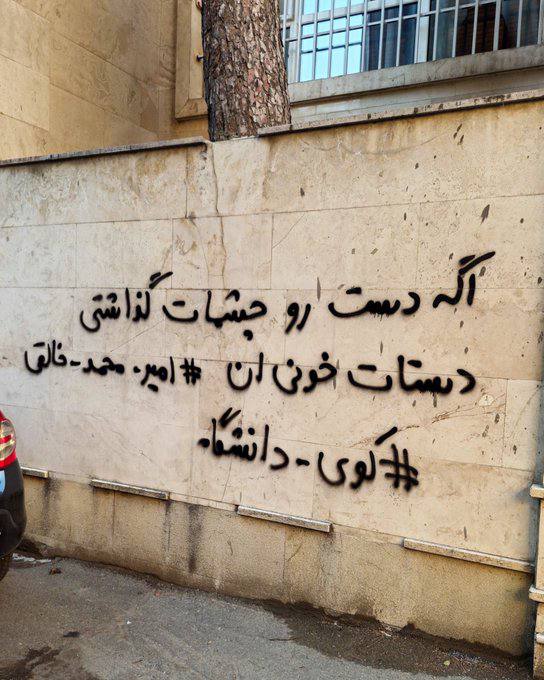 اگه دست رو چشمات گذاشتی
دستات خونی ان #امیر_محمد_خالقی
#کوی_دانشگاه